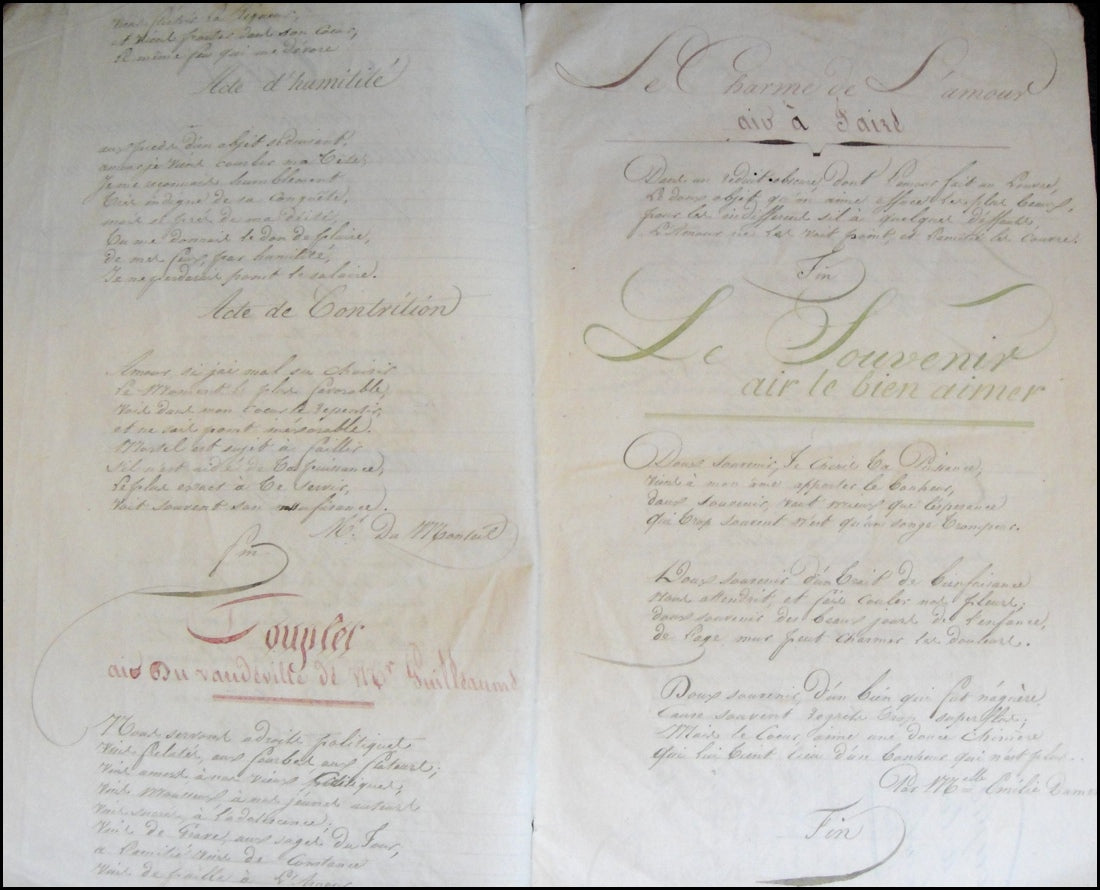 et vient
Le même feu qui me dévore
Acte d'humilité
aux pieds d'un objet séduisant,
amour je viens courber ma tête,
Je me reconnais humblement
Très indigne de sa conquête,
mais si près de ma
Tu me donnais le don de plaire,
de mes feux, par humilité,
Je ne perdrais point le salaire.
Acte de Contrition
Amour, si j'ai mal su choisir
Le Moment le plus favorable,
Vois dans mon coeur le repentir,
et ne sois point inéxorable.
Mortel est sujet à faillir
S'il n'est aidé de Ta puissance,
Le plus exact à Te servir,
Voit souvent son insufisance.
Mr. Du
fin
Couplet
air Du vaudeville de Mr Guilleaume
Nous servons
Vins
Vins
Vins Mousseux, à nos jeunes auteurs
Vins sucrés à l'adolescence
Vins de Grave, aux sages du Jour,
a l'amitié vins de Constance
Vins de paille à l'Amour
Le Charme de L'amour
air à Faire
Dans un réduit obscur, dont l'amour fait un Louvre,
Le doux objet qu'on aime efface les plus beaux,
pour les indifférens s'il à quelques défauts
L'Amour ne les voit point, et l'amitié les couvre.
Fin
Le Souvenir
air le bien aimer
Doux souvenir, Je chéris Ta Puissance,
Viens à mon ame apporter le bonheur,
doux souvenir, vaut mieux que l'éspérance
qui trop souvent n'est qu'un songe trompeur.
Doux souvenir d'un trait de bienfaisance
nous attendrit, et fait couler nos pleurs;
doux souvenir des beaux jours de l'enfance,
de l'age mur peut charmer les douleurs.
Doux souvenir, d'un bien qui fut nàguère
Cause souvent regrets trop superflus;
Mais le Coeur aime une douce chimère
qui lui tient lieu d'un bonheur qui n'est plus..
Par Melle Emilie
Fin